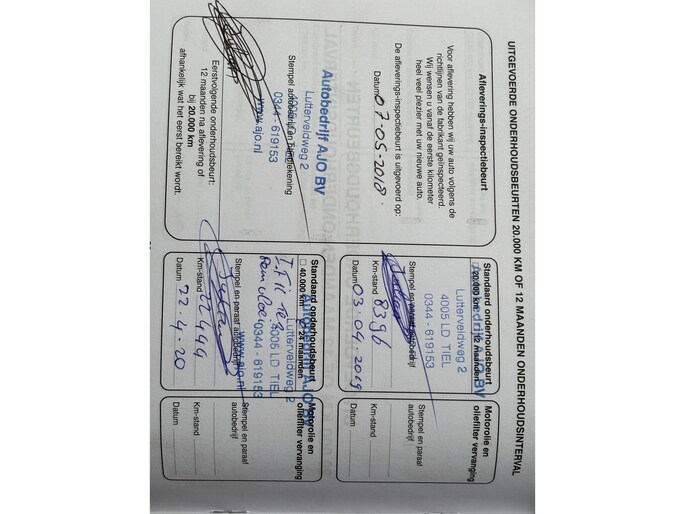 UITGEVOERDE ONDERHOUDSBEURTEN 20.000 KM OF 12 MAANDEN ONDERHOUDSINTERVAL
Afleverings-inspectiebeurt
Voor aflevering hebben wij uw auto volgens de
richtlijnen van de fabrikant geïnspecteerd.
Wij wensen u vanaf de eerste kilometer
heel veel plezier met uw nieuwe auto.
De afleverings-inspectiebeurt is uitgevoerd op:
Datum 07-05-2018.
Autobedrijf AJO BV
Lutterveldweg 2
Stempel autobedrijf en handtekening
0344 - 619153
www.ajo.nl
Eerstvolgende onderhoudsbeurt:
12 maanden na aflevering of
bij 20.000 km
afhankelijk wat het eerst bereikt wordt.
Standaard onderhoudsbeurt
20.000 km / 12 maanden
Lutterveldweg 2
4005 LD TIEL
0344 - 619153
Stempel en paraaf autobedrijf
Km-stand 8396
Datum 03.04.2019
Motorolie en
oliefilter vervanging
Stempel en paraaf
autobedrijf
Km-stand
Datum
Standaard onderhoudsbeurt
40.000 km / 24 maanden
Autobedrijf AJO BV
Lutterveldweg 2
4005 LD TIEL
0344 - 619153
www.ajo.nl
Stempel en paraaf autobedrijf
Km-stand 22499
Datum 22-4-20
Motorolie en
oliefilter vervanging
Stempel en paraaf
autobedrijf
Km-stand
Datum